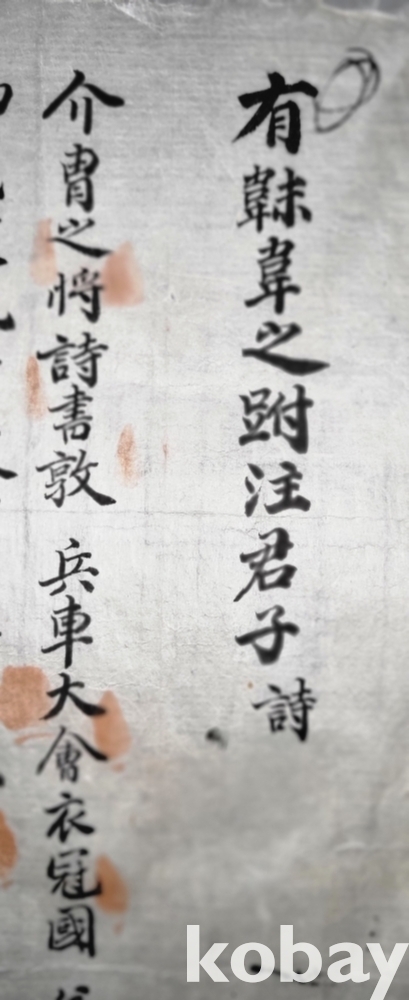 有韎韋之跗注君子詩
介胄之將詩書敦 兵車大會衣冠國
kobay